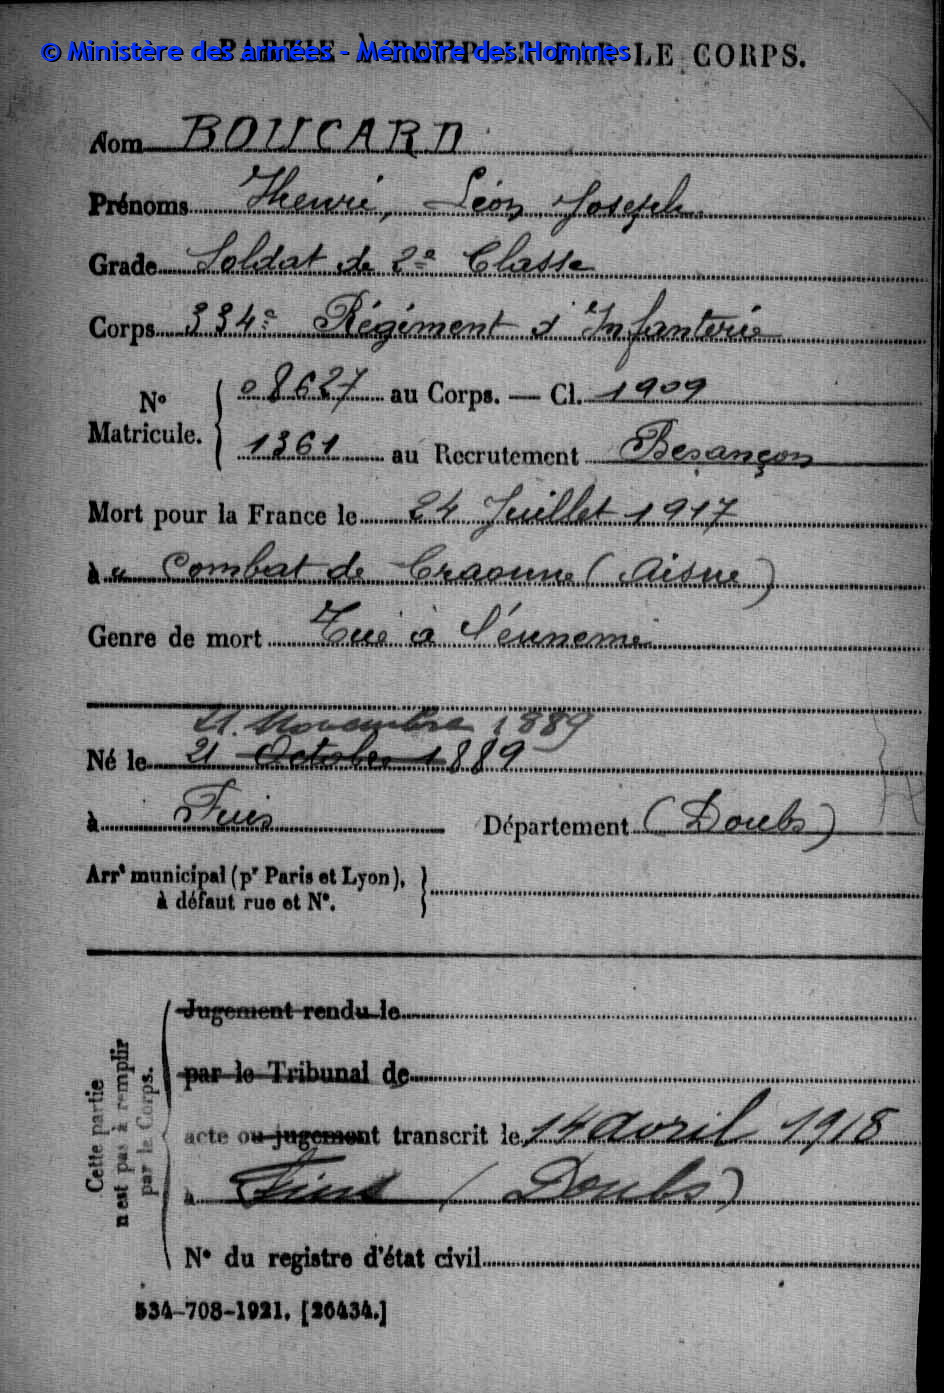 © Ministère des armées - Mémoire des Hommes
PARTIE À REMPLIR PAR LE CORPS.
Nom BOUCARD
Prénoms Henri, Léon Joseph
Grade Soldat de 2e Classe
Corps 334e Régiment d'Infanterie
No Matricule. { 08627 au Corps. — Cl. 1909
1361 au Recrutement Besançon
Mort pour la France le 24 Juillet 1917
à " Combat de Craonne (Aisne)
Genre de mort Tué à l'ennemi
21 Novembre 1889
Né le 21 Octobre 1889
à Fuis Département (Doubs)
Arrt municipal (pr Paris et Lyon), à défaut rue et No. }
Cette partie n'est pas à remplir par le Corps.
Jugement rendu le
par le Tribunal de
acte ou jugement transcrit le 14 avril 1918
à (Doubs)
No du registre d'état civil
534-708-1921. [26434.]